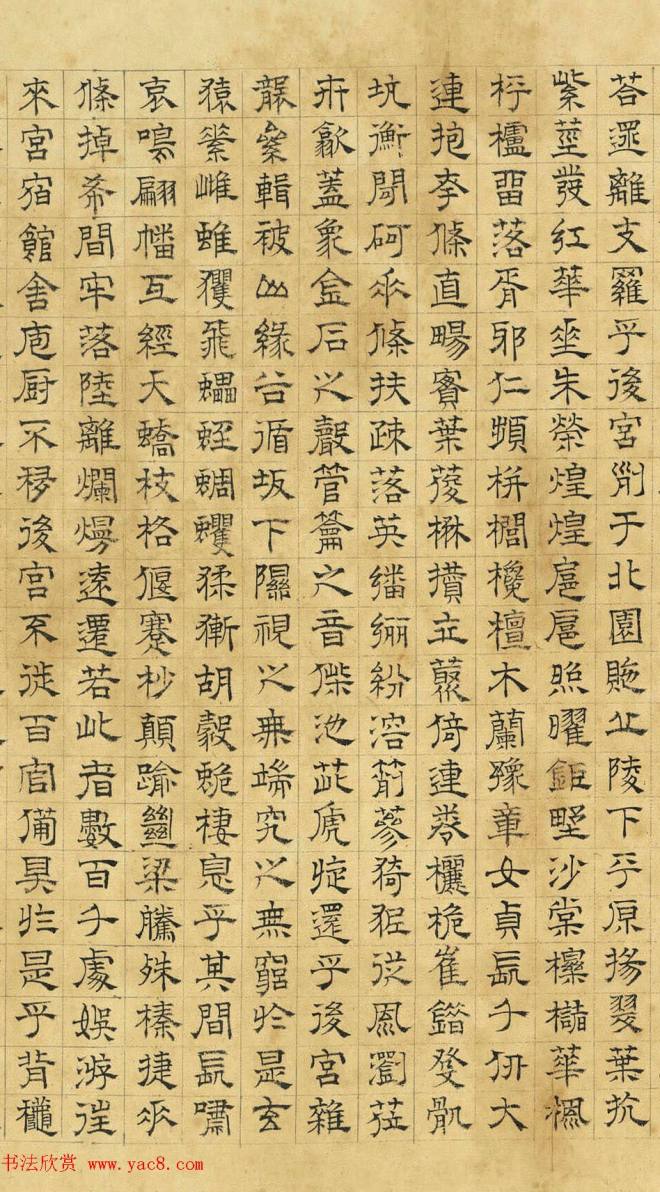 荅遝離支羅乎後宮列于北園貤丘陵下平原揚翠葉扤
紫莖發紅華垂朱榮煌煌扈扈照曜鉅野沙棠櫟櫧華楓
枰櫨留落胥邪仁頻栟櫚欃檀木蘭豫章女貞長千仞大
連抱夸條直暢實葉葰楙攢立叢倚連卷欐佹崔錯癹骫
坑衡閜砢垂條扶疎落英繙纚紛溶箾蔘猗狔從風瀏莅
卉歙蓋象金石之聲管籥之音偨池茈虒旋還乎後宮雜
襲絫輯被山緣谷循坂下隰視之無端究之無窮於是玄
猿素雌蜼玃飛蠝蛭蜩蠼猱獑胡縠蛫棲息乎其間長嘯
哀鳴翩幡互經夭蟜枝格偃蹇杪顛踰絕梁騰殊榛捷垂
條掉希間牢落陸離爛熳遠遷若此者數百千處娛游往
來宮宿館舍庖廚不移後宮不徙百官備具於是乎背穐
书法欣赏 www.yac8.com